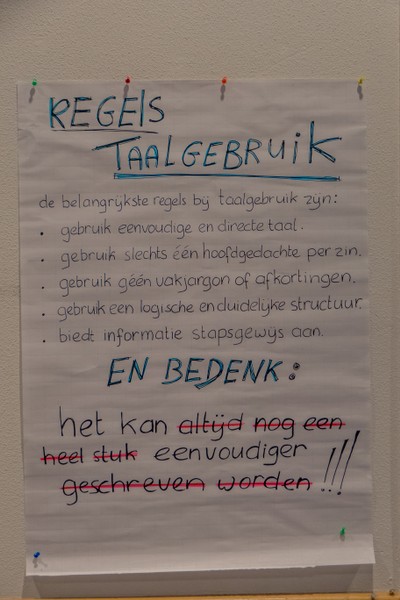 REGELS
TAALGEBRUIK
de belangrijkste regels bij taalgebruik zijn:
. gebruik eenvoudige en directe taal.
. gebruik slechts één hoofdgedachte per zin.
. gebruik géén vakjargon of afkortingen.
. gebruik een logische en duidelijke structuur.
. biedt informatie stapsgewijs aan.
EN BEDENK:
het kan altijd nog een
heel stuk eenvoudiger
geschreven worden !!!